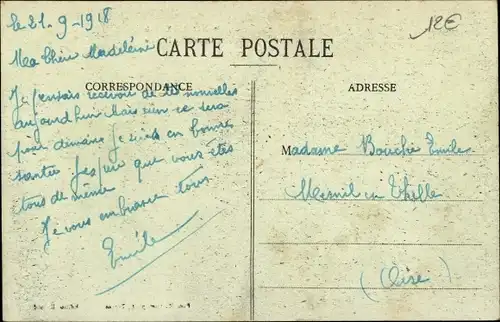 le 21-9-1918
12€
Ma Chère Madeleine
CARTE POSTALE
CORRESPONDANCE
ADRESSE
Je pensais recevoir de tes nouvelles
aujourd'hui Mais rien ce sera
pour demain je suis en bonne
santée j'espère que vous êtes
tous de même
Je vous embrasse tous
Emile
Madame Bouche Emile
Mesnil en Thelle
(Oise)